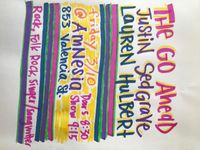 THE GO AheaD
JuStiN Sedgrove
LAUREN HULBERT
friday 5/10 Doors 8:30
@ Amnesia Show 9:15
853 Valencia St.
Rock, Folk Rock, Singer/Songwriter